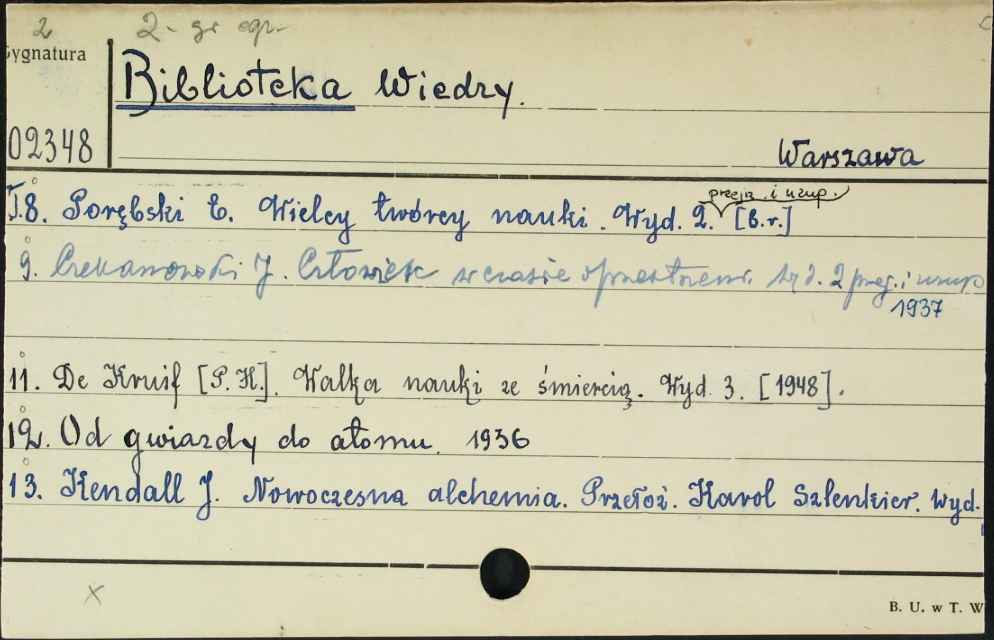 2 2. gr egz.
Sygnatura
Biblioteka Wiedzy.
02348
Warszawa
przejrz. i uzup.
T.8. Porębski E. Wielcy twórcy nauki. Wyd. 2. [B.r.]
9. Czekanowski J. Człowiek w czasie i przestrzeni. Wyd. 2 przej. i uzup
1937
11. De Kruif [P. H.]. Walka nauki ze śmiercią. Wyd. 3. [1948].
12. Od gwiazdy do atomu. 1936
13. Kendall J. Nowoczesna alchemia. Przełoż. Karol Szlenkier. Wyd.
x
B. U. w T. W